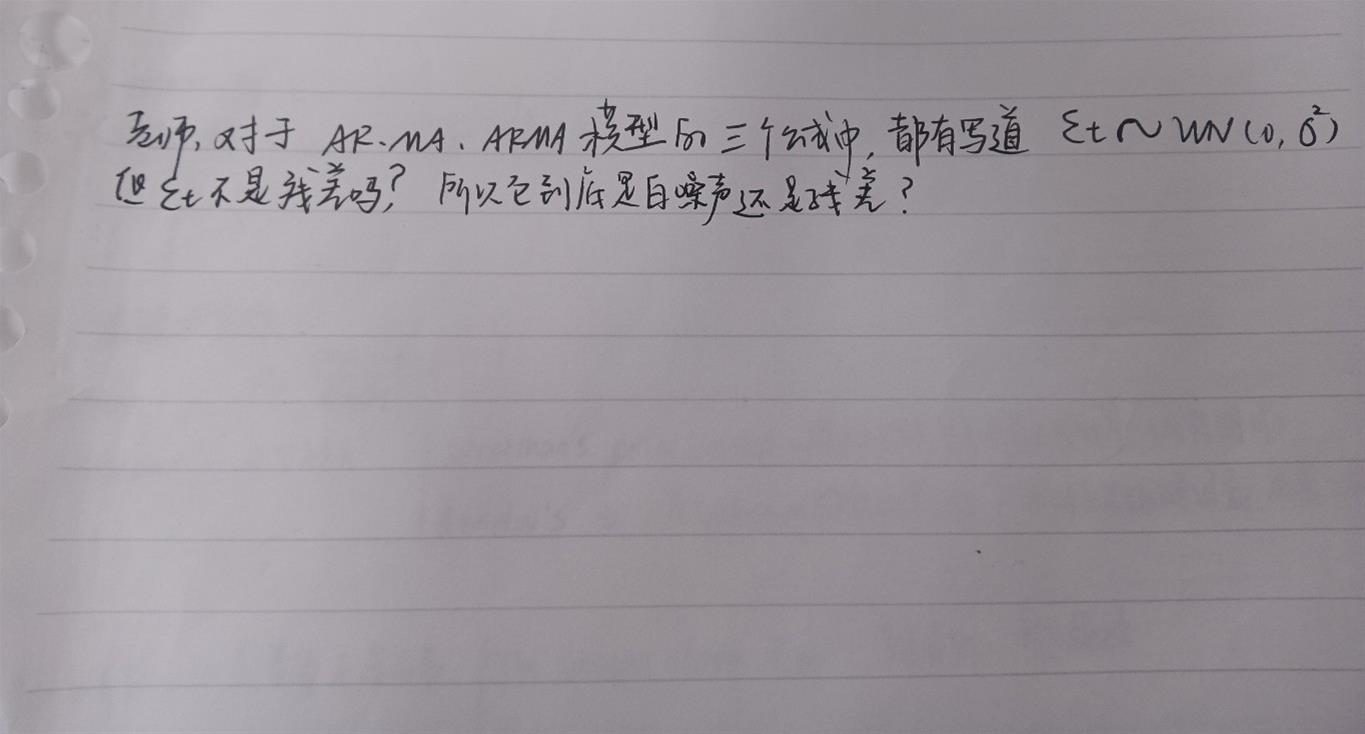 老师,对于 AR、MA、ARMA 模型的三个公式中,都有写道 εt~WN(0,σ²)
但 εt 不是残差吗?所以它到底是白噪声还是残差?